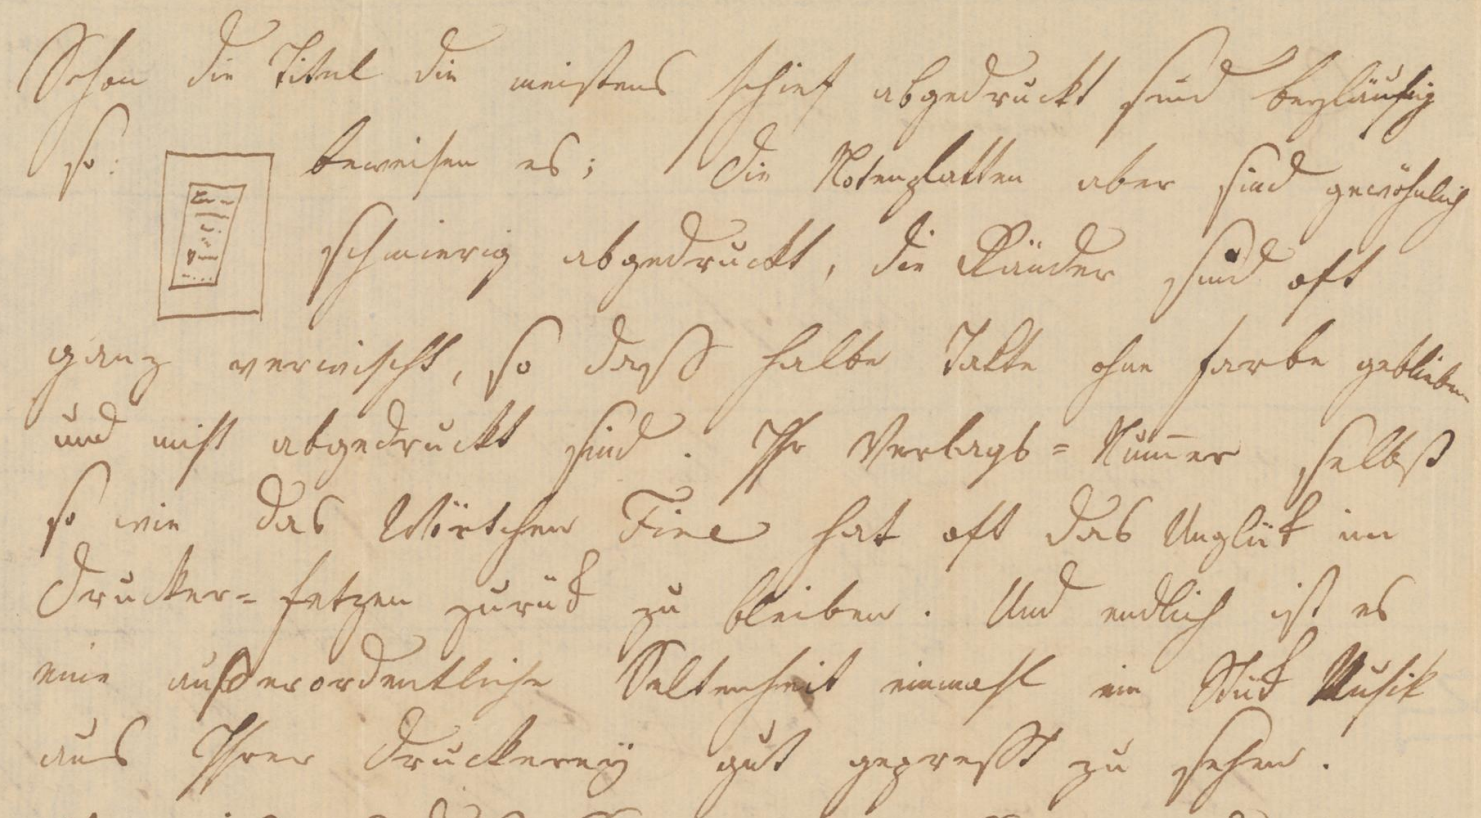 Schon die Titel die meistens schief abgedruckt sind beyläufig
so: beweisen es; die Notenplatten aber sind gewöhnlich
schmierig abgedruckt, die Ränder sind oft
ganz verwischt, so daß halbe Takte ohne farbe geblieben
und nicht abgedruckt sind. Ihr Verlags=Num̅er selbst
so wie das Wörtchen Fine hat oft das Unglük im
Drucker=fetzen zurük zu bleiben. Und endlich ist es
eine außerordentliche Seltenheit einmahl ein Stük Musik
aus Ihrer Druckereÿ gut gepreßt zu sehen.